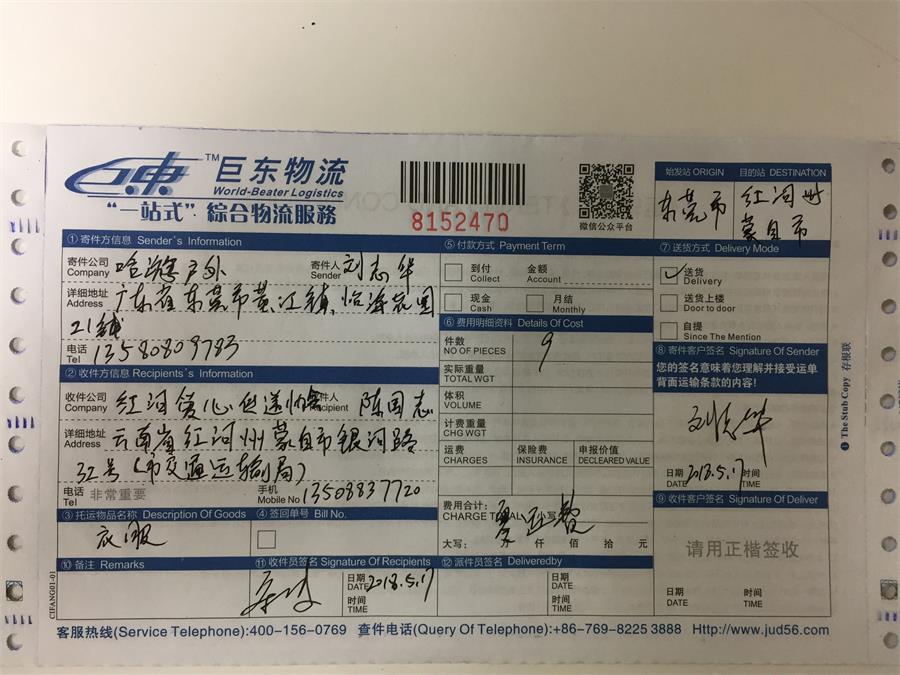 TM 巨东物流
World-Beater Logistics
“一站式”綜合物流服務
8152470
微信公众平台
始发站 ORIGIN 目的站 DESTINATION
东莞市 红河州
蒙自市
①寄件方信息 Sender's Information
寄件公司 Company 户外 寄件人 Sender 刘志华
详细地址 Address 广东省东莞市黄江镇,怡海花园
21铺
电话 Tel 13580809783
②收件方信息 Recipients's Information
收件公司 Company 红河爱心 收件人 Recipient 陈国志
详细地址 Address 云南省红河州蒙自市银河路
32号(市交通运输局)
电话 Tel 非常重要 手机 Mobile No 13508837720
③托运物品名称 Description Of Goods ④签回单号 Bill No.
衣服
⑩备注 Remarks ⑪收件员签名 Signature Of Recipients ⑫派件员签名 Deliveredby
日期 DATE 2018.5.17
时间 TIME
日期 DATE
时间 TIME
⑤付款方式 Payment Term
到付 Collect 金额 Account
现金 Cash 月结 Monthly
⑥费用明细资料 Details Of Cost
件数 NO OF PIECES 9
实际重量 TOTAL WGT
体积 VOLUME
计费重量 CHG WGT
运费 CHARGES 保险费 INSURANCE 申报价值 DECLEARED VALUE
费用合计: CHARGE TOTAL 小写
大写: 万 仟 佰 拾 元
⑦送货方式 Delivery Mode
送货 Delivery
送货上楼 Door to door
自提 Since The Mention
⑧寄件客户签名 Signature Of Sender
您的签名意味着您理解并接受运单
背面运输条款的内容!
刘志华
日期 DATE 2018.5.17 时间 TIME
⑨收件客户签名 Signature Of Deliver
请用正楷签收
日期 DATE 时间 TIME
❶ The Stub Copy 存根联
CIFANG01-01
客服热线(Service Telephone):400-156-0769 查件电话(Query Of Telephone):+86-769-8225 3888 Http://www.jud56.com